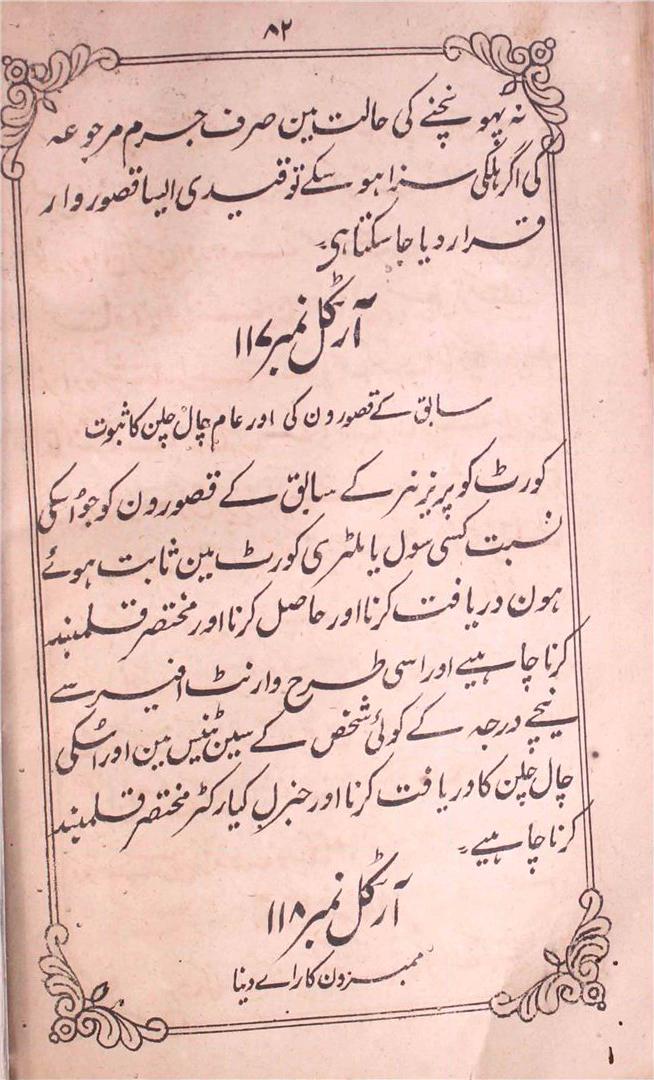 ۸۲
نہ پہونچنے کی حالت مین صرف جرم مرجوعہ
کی اگر ہلکی سزا ہو سکے تو قیدی ایسا قصوروار
قرار دیا جا سکتا ہی۔
آرٹکل نمبر ۱۱۷
سابق کے قصورون کی اور عام چال چلن کا ثبوت
کورٹ کو پریزنر کے سابق کے قصورون کو جو اُسکی
نسبت کسی سول یا ملٹری کورٹ مین ثابت ہوئے
ہون دریافت کرنا اور حاصل کرنا اور مختصر قلمبند
کرنا چاہیے اور اسی طرح وارنٹ افیسر سے
نیچے درجہ کے کوئی شخص کے سین ٹنیس مین اور اُسکی
چال چلن کا دریافت کرنا اور جنرل کیارکٹر مختصر قلمبند
کرنا چاہیے۔
آرٹکل نمبر ۱۱۸
ممبرون کا راے دینا